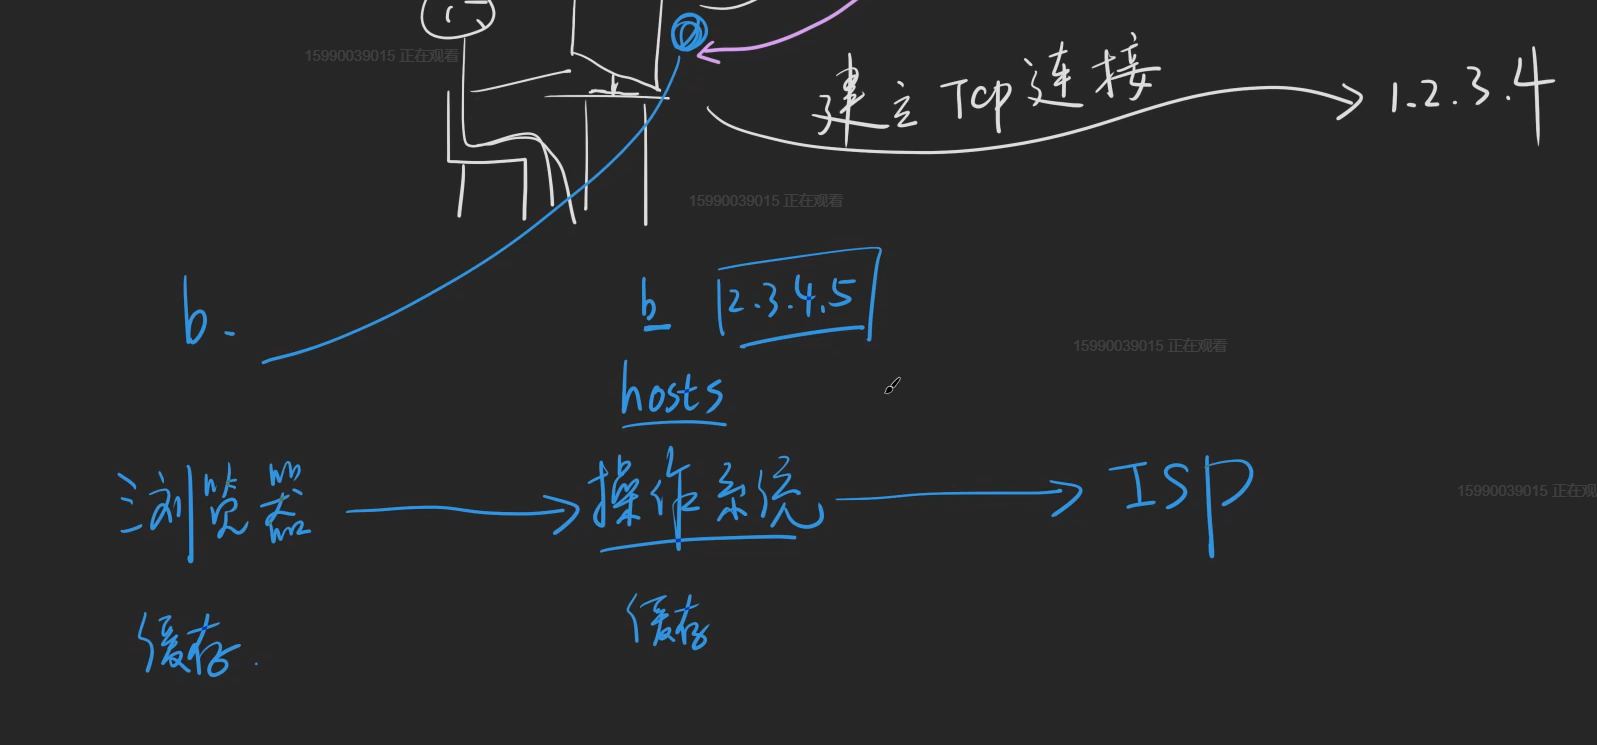 15990039015 正在观看
建立 Tcp 连接
1.2.3.4
15990039015 正在观看
b.
b 2.3.4.5
15990039015 正在观看
hosts
浏览器 操作系统 ISP
15990039015 正在观
缓存 缓存